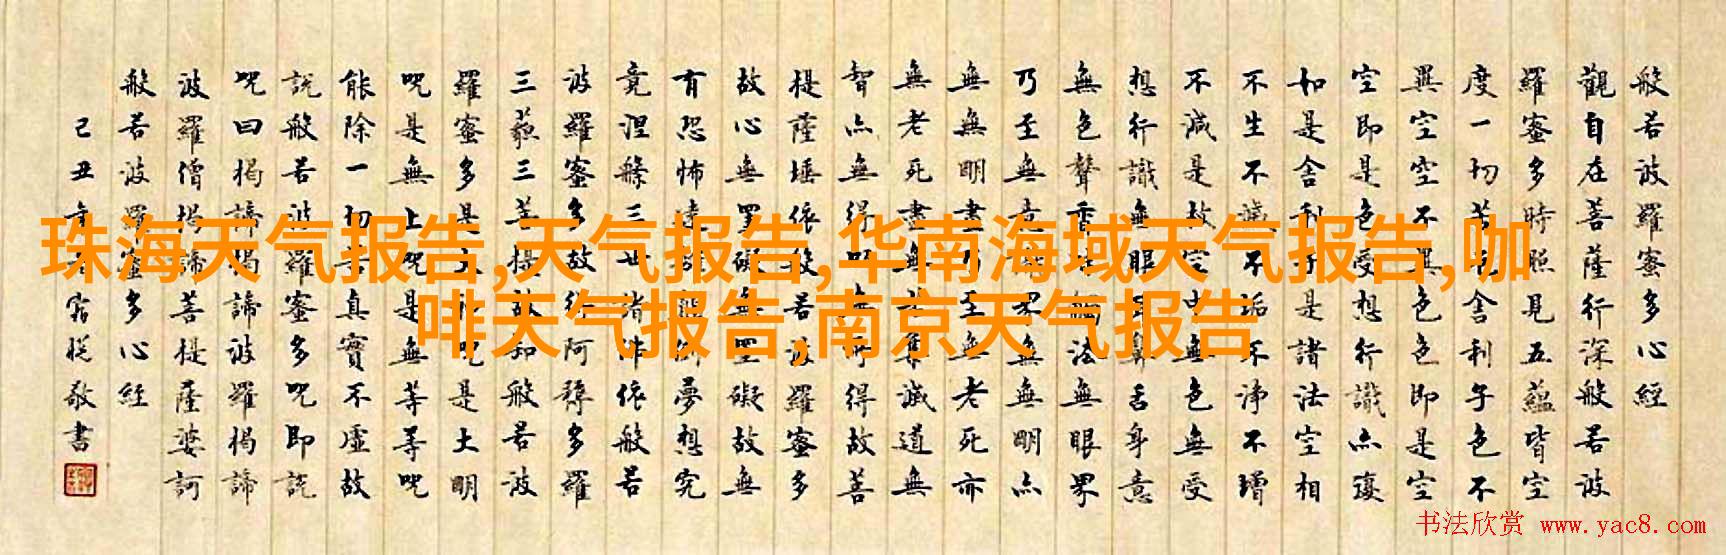 珠海天气报告,天气报告,华南海域天气报告,咖
啡天气报告,南京天气报告
般若波羅蜜多心經
觀自在菩薩行深般若波
羅蜜多時照見五蘊皆空
度一切苦厄舍利子色不
異空空不異色色即是空
空即是色受想行識亦復
如是舍利子是諸法空相
不生不滅不垢不淨不增
不減是故空中無色無受
想行識無眼耳鼻舌身意
無色聲香味觸法無眼界
乃至無意識界無無明亦
無無明盡乃至無老死亦
無老死盡無苦集滅道無
智亦無得以無所得故菩
提薩埵依般若波羅蜜多
故心無罣礙無罣礙故無
有恐怖遠離顛倒夢想究
竟涅槃三世諸佛依般若
波羅蜜多故得阿耨多羅
三藐三菩提故知般若波
羅蜜多是大神呪是大明
呪是無上呪是無等等呪
能除一切苦真實不虛故
說般若波羅蜜多呪即說
呪曰揭諦揭諦波羅揭諦
波羅僧揭諦菩提薩婆訶
般若波羅蜜多心經
己丑年敬書
书法欣赏 www.yac8.com